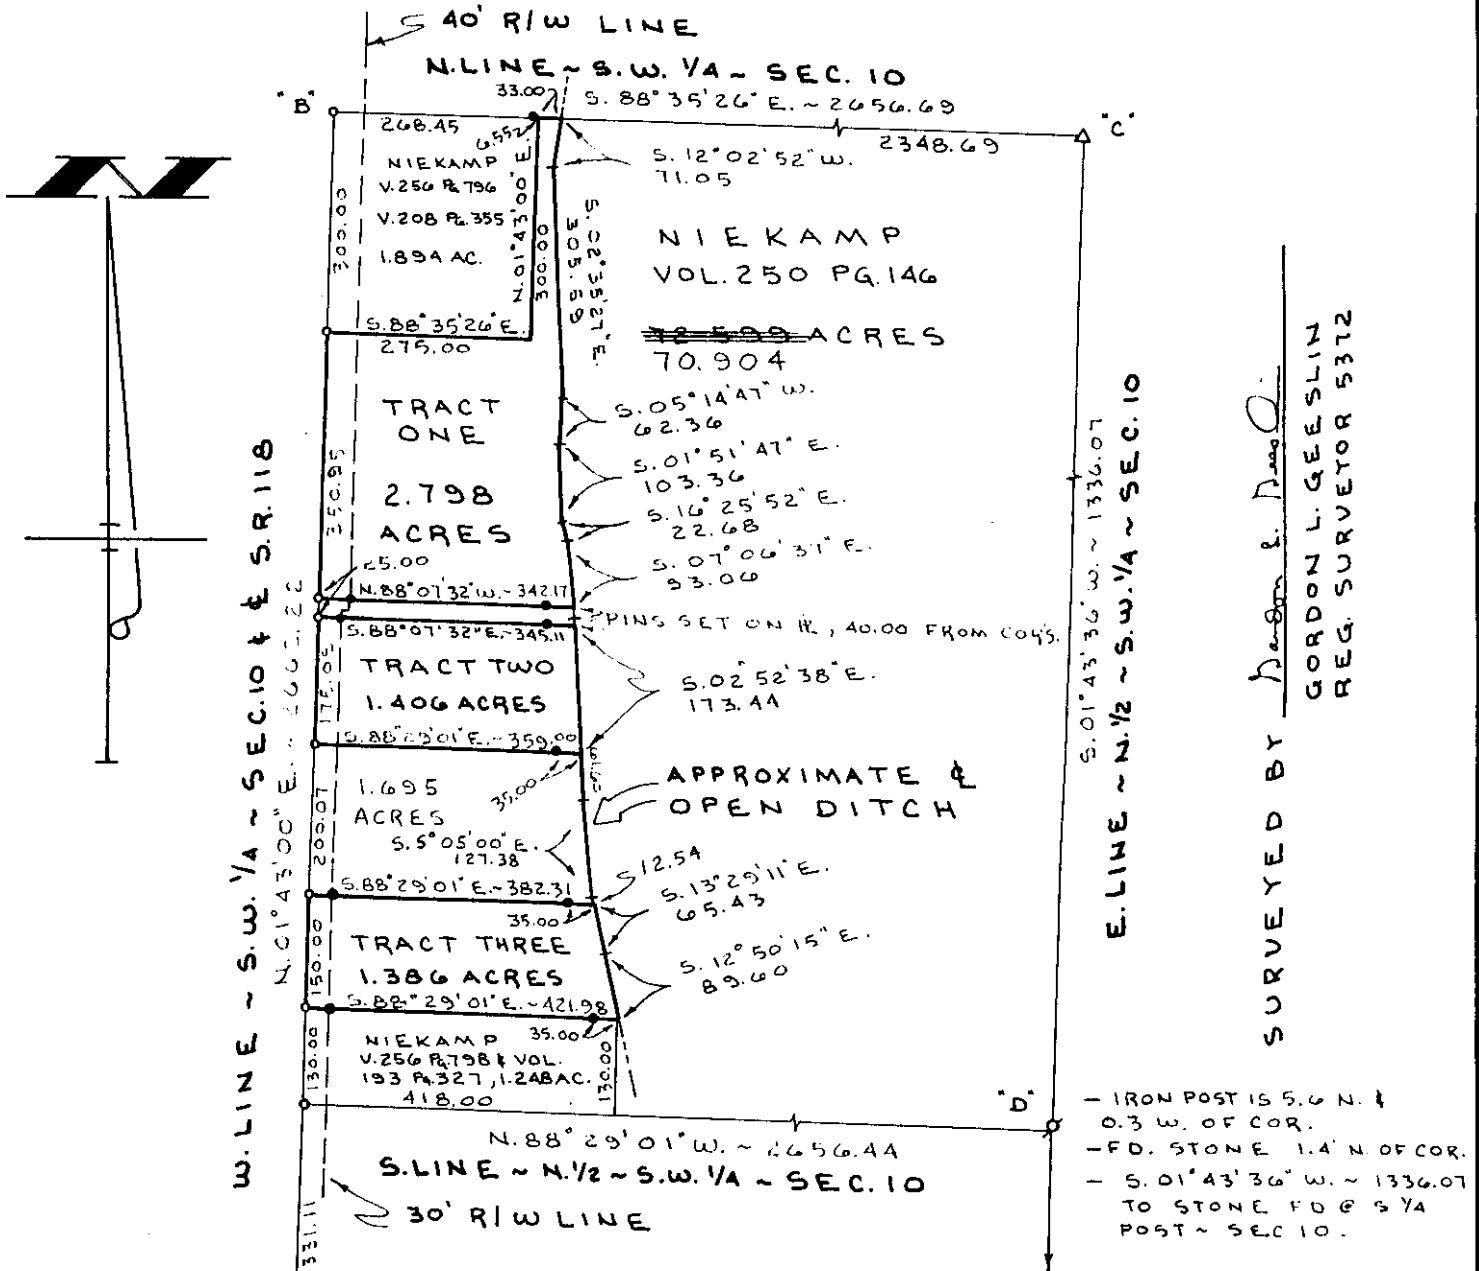 40' R/W LINE
N. LINE ~ S.W. 1/4 ~ SEC. 10
"B"
33.00
S. 88° 35' 26" E. ~ 2656.69
"C"
268.45
6.552
2348.69
N
NIEKAMP
V. 256 PG. 796
V. 208 PG. 355
1.894 AC.
300.00
N. 01° 43' 00" E.
300.00
S. 12° 02' 52" W.
71.05
S. 02° 35' 27" E.
305.59
NIEKAMP
VOL. 250 PG. 146
ACRES
70.904
S. 88° 35' 26" E.
275.00
TRACT
ONE
2.798
ACRES
350.95
S. 05° 14' 47" W.
62.36
S. 01° 51' 47" E.
103.36
S. 16° 25' 52" E.
22.68
S. 07° 06' 37" E.
93.06
25.00
N. 88° 07' 32" W. ~ 342.17
PINS SET ON , 40.00 FROM COR'S.
S. 88° 07' 32" E. ~ 345.11
TRACT TWO
1.406 ACRES
175.05
S. 02° 52' 38" E.
173.44
S. 88° 29' 01" E. ~ 359.00
35.00
1.695
ACRES
200.07
S. 5° 05' 00" E.
127.38
APPROXIMATE ℄
OPEN DITCH
S. 88° 29' 01" E. ~ 382.31
35.00
12.54
S. 13° 29' 11" E.
65.43
TRACT THREE
1.386 ACRES
150.00
S. 12° 50' 15" E.
89.60
S. 88° 29' 01" E. ~ 421.98
35.00
NIEKAMP
V. 256 PG. 798 & VOL.
193 PG. 327, 1.248 AC.
418.00
130.00
130.00
"D"
N. 88° 29' 01" W. ~ 2656.44
S. LINE ~ N. 1/2 ~ S.W. 1/4 ~ SEC. 10
30' R/W LINE
331.11
W. LINE ~ S.W. 1/4 ~ SEC. 10 & ℄ S.R. 118
N. 01° 43' 00" E. ~
S. 01° 43' 36" W. ~ 1336.07
E. LINE ~ N. 1/2 ~ S.W. 1/4 ~ SEC. 10
SURVEYED BY
GORDON L. GEESLIN
REG. SURVEYOR 5372
- IRON POST IS 5.6 N. &
0.3 W. OF COR.
- FD. STONE 1.4' N. OF COR.
- S. 01° 43' 36" W. ~ 1336.07
TO STONE FD @ S 1/4
POST ~ SEC 10.